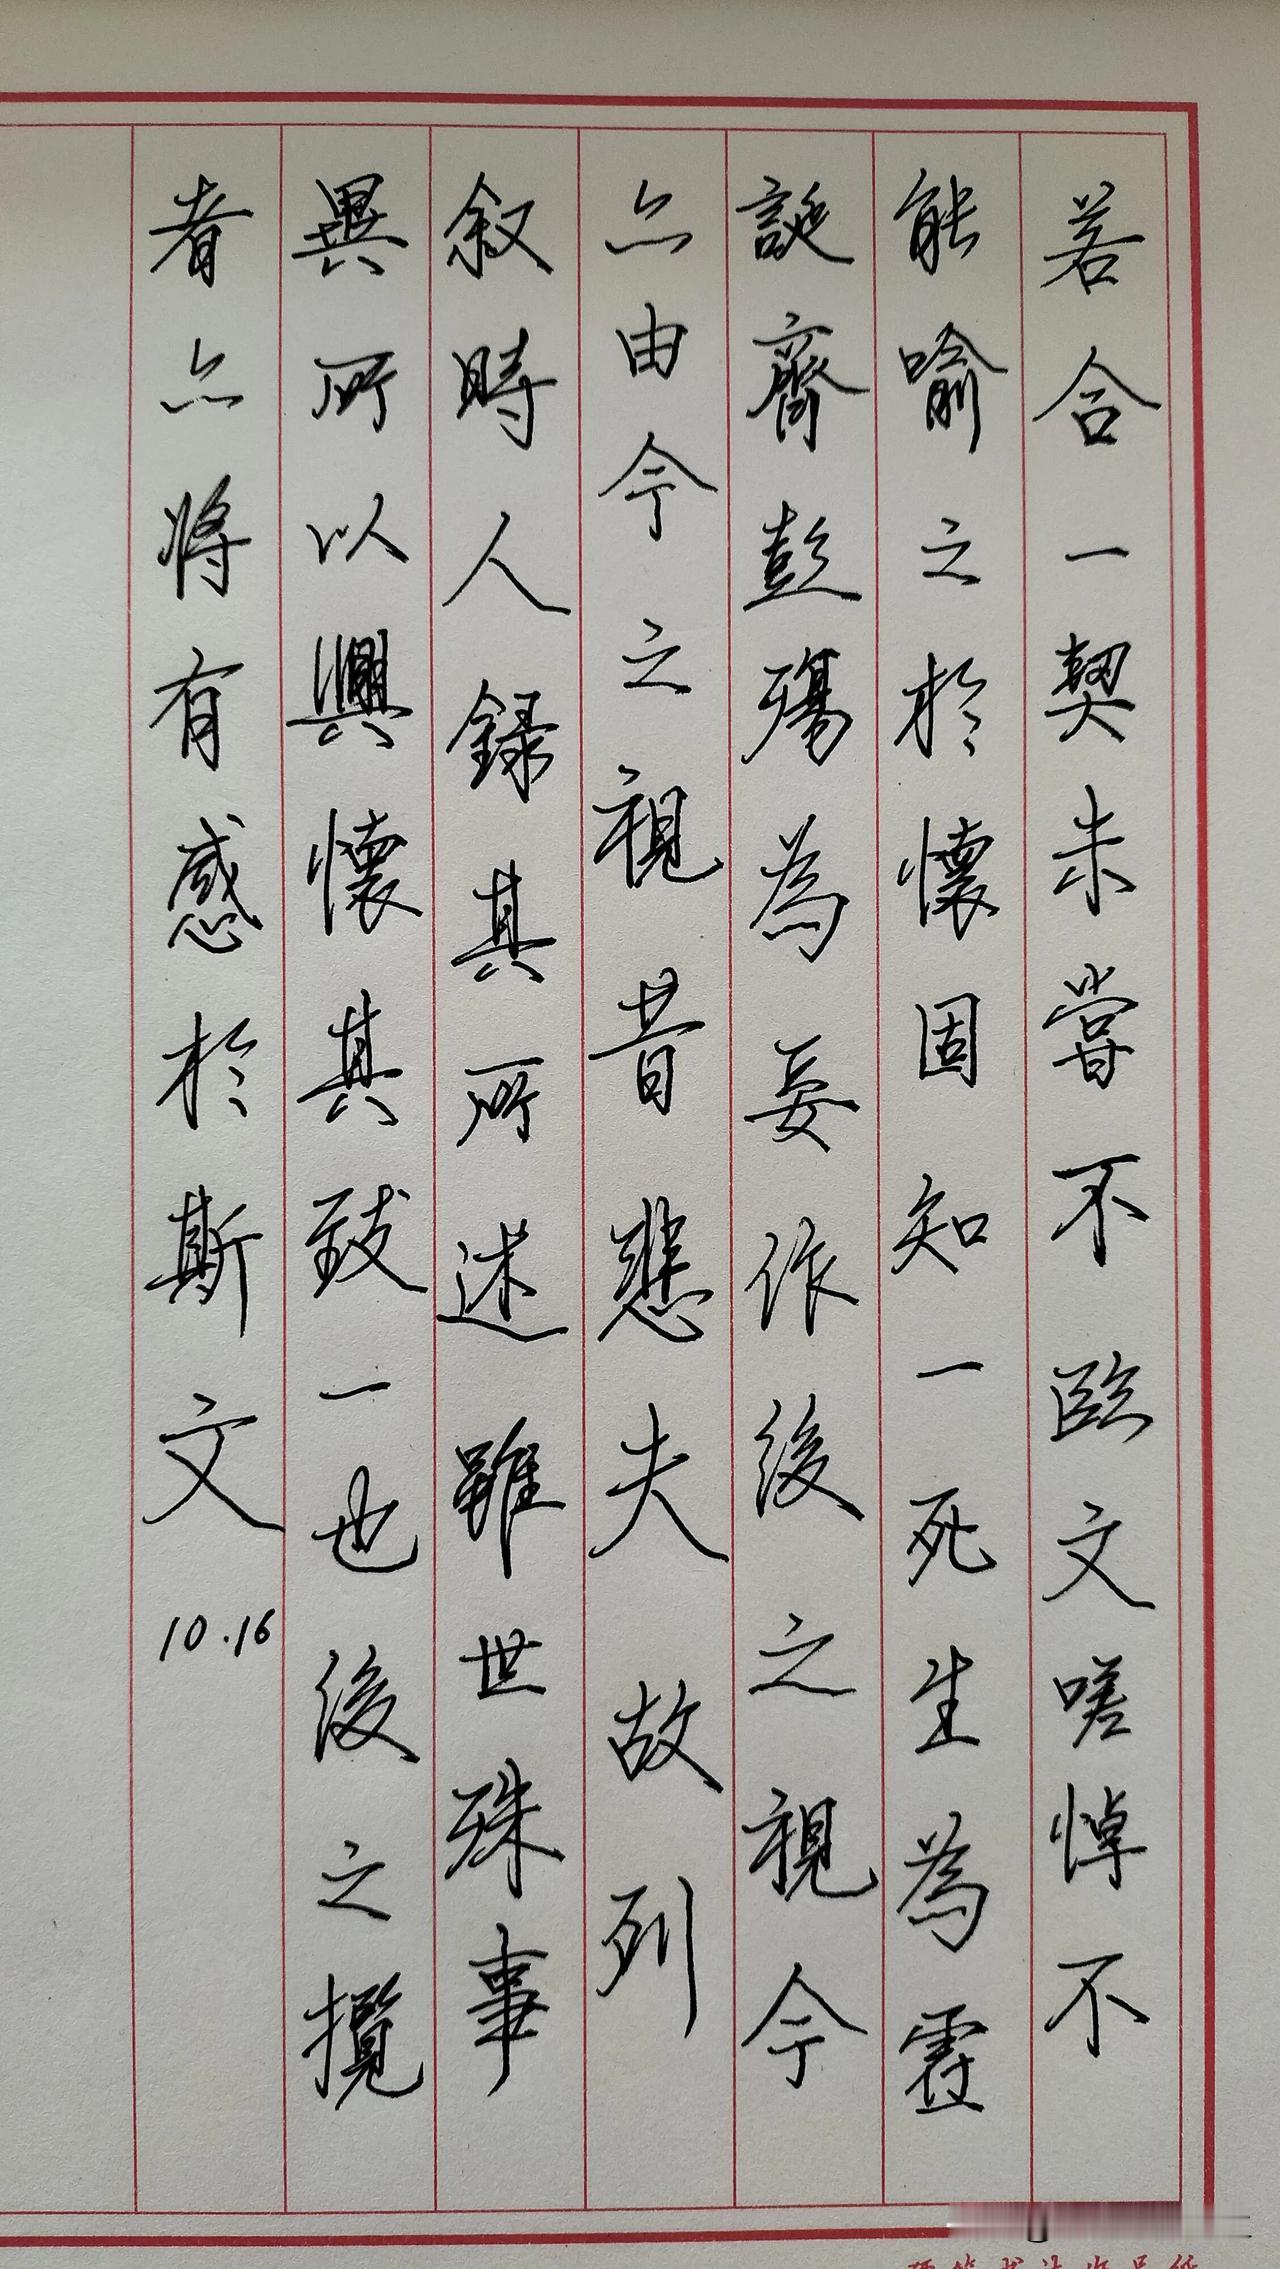 若合一契未嘗不臨文嗟悼不
能喻之於懷固知一死生為虛
誕齊彭殤為妄作後之視今
亦由今之視昔悲夫故列
叙時人録其所述雖世殊事
異所以興懷其致一也後之攬
者亦將有感於斯文
10.16